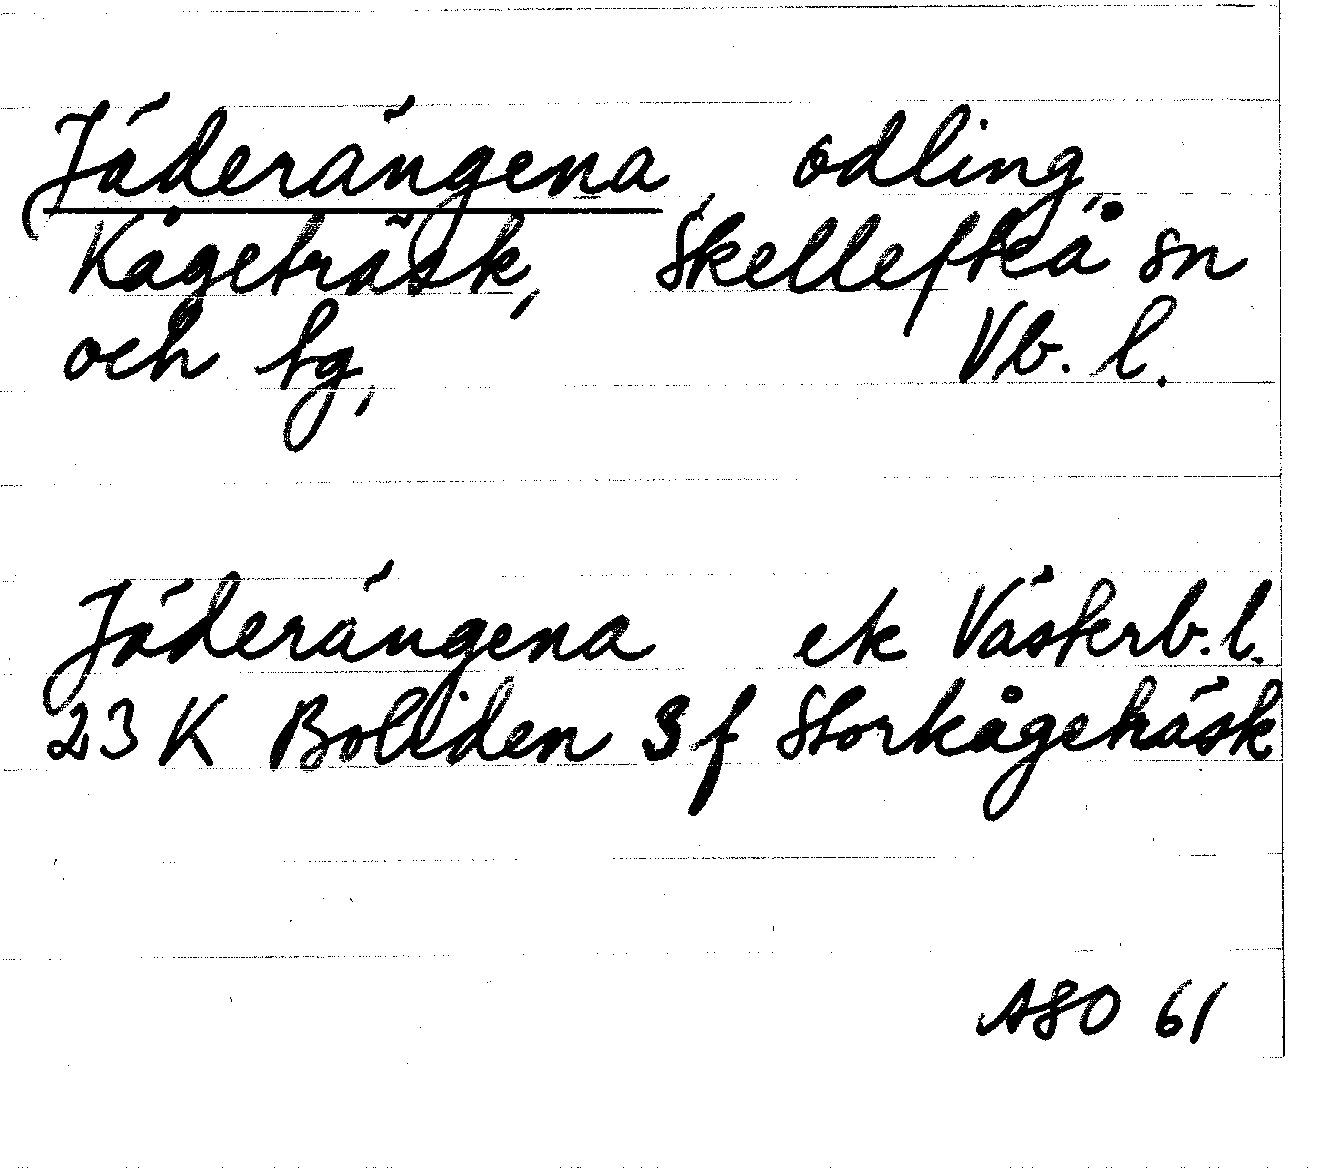 Jäderängena, odling,
Kågeträsk, Skellefteå sn
och tg, Vb. l.
Jäderängena ek Västerb.l.
23 K Boliden 3f Storkågeträsk
ASO 61